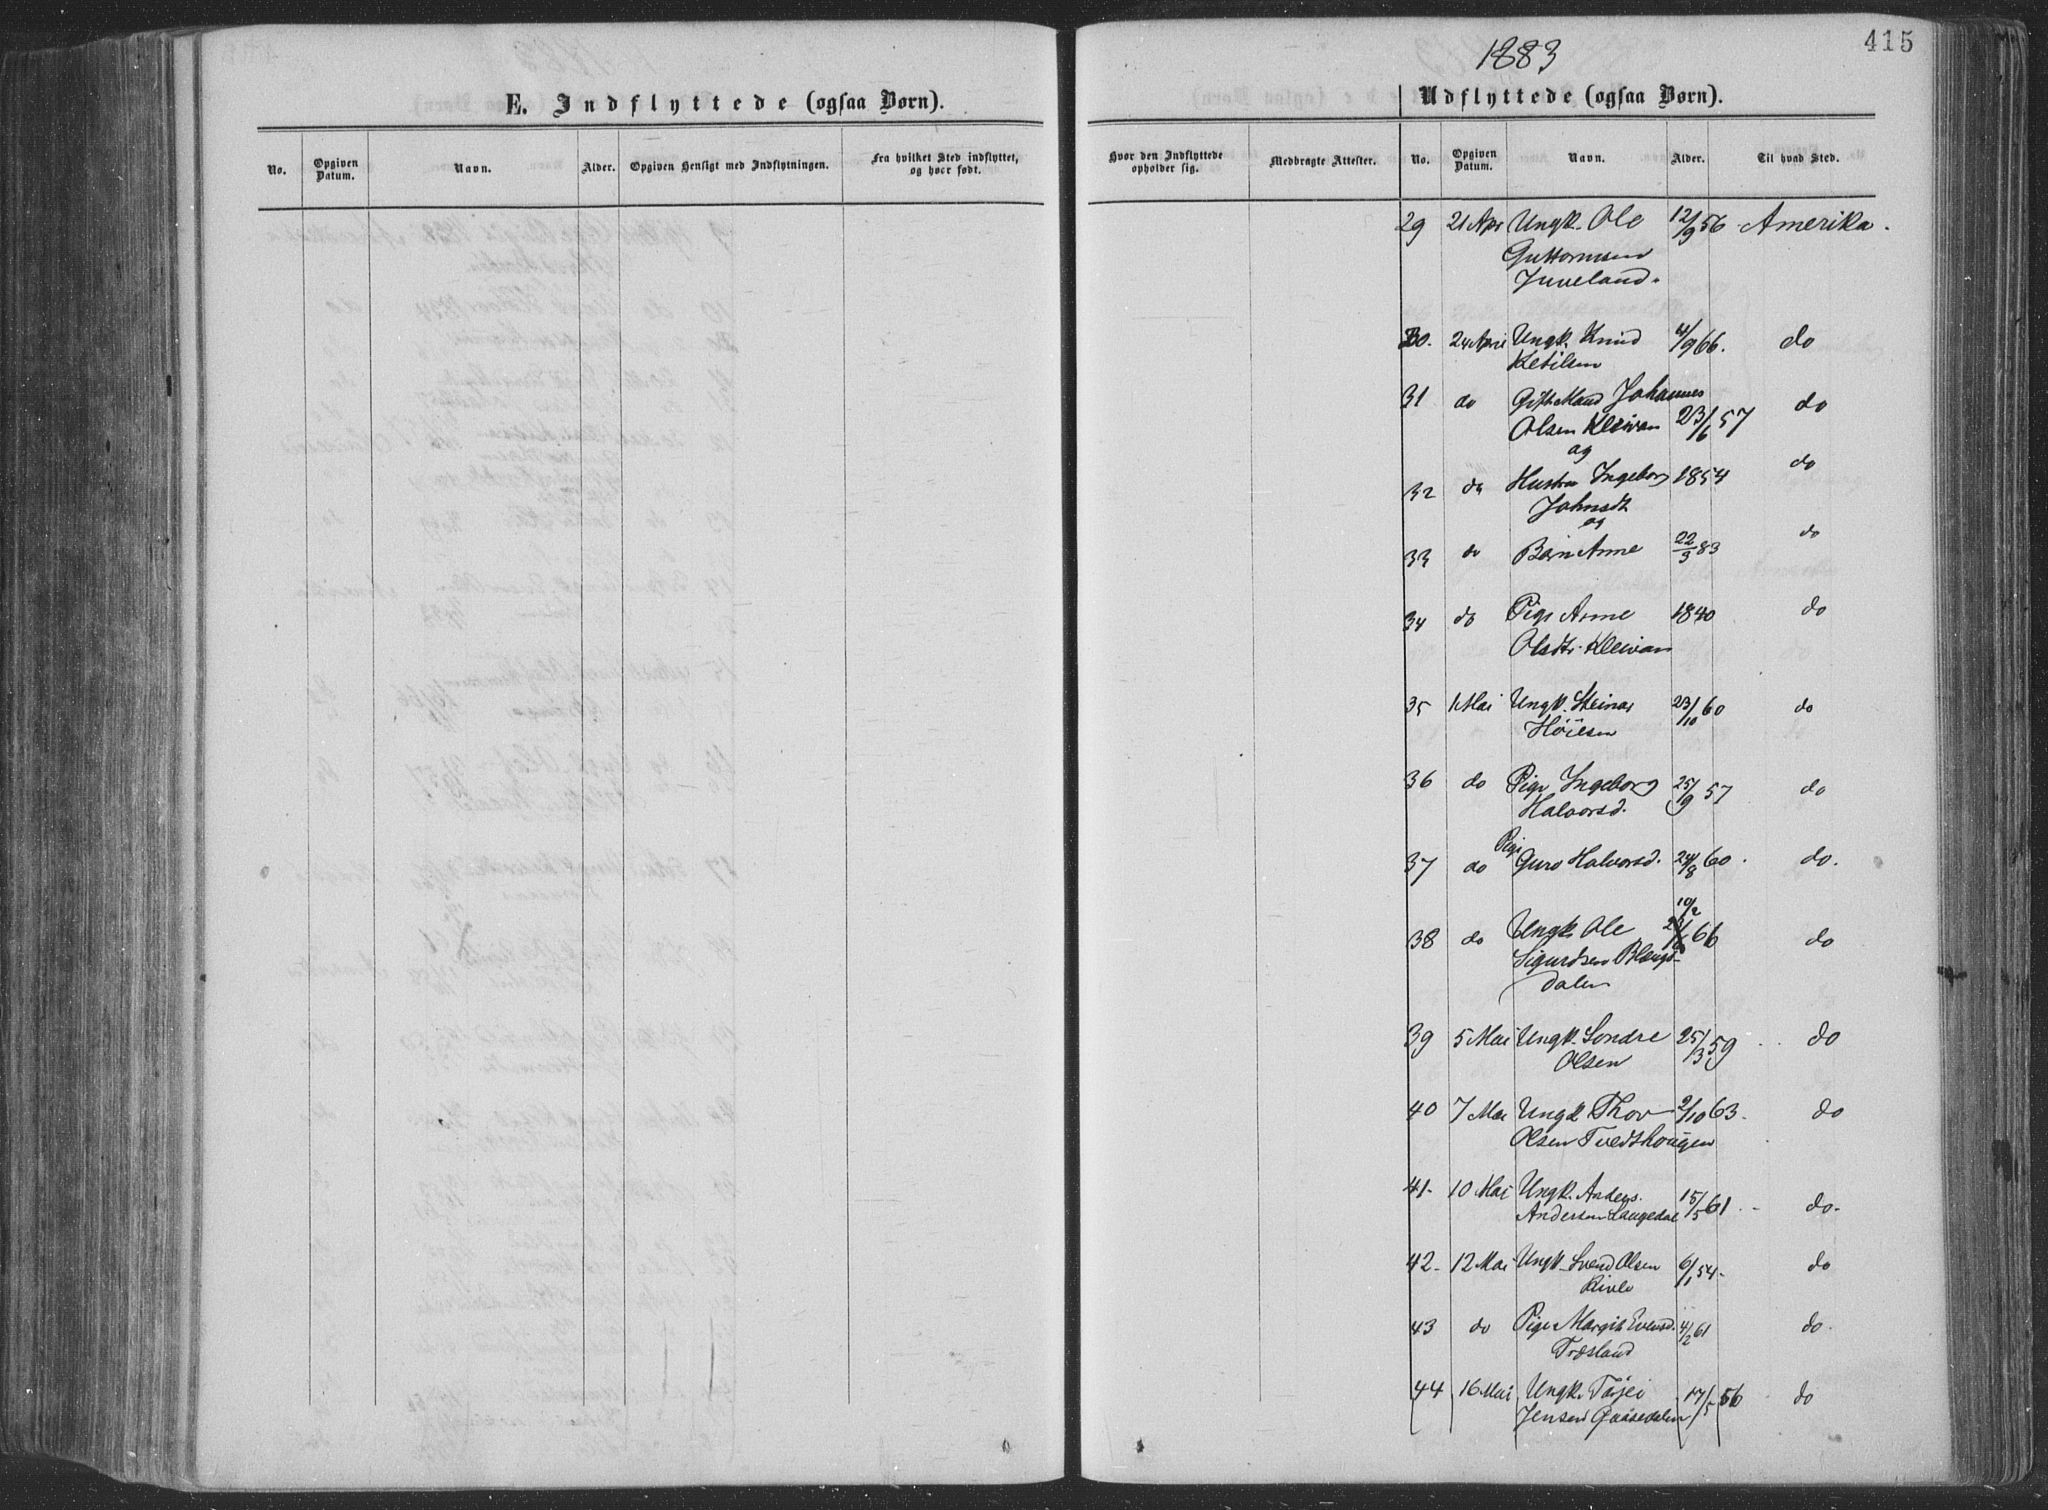 415
1883
E. Indflyttede (ogsaa Børn).
No. Opgiven Datum. Navn. Alder. Opgiven Hensigt med Indflytningen. Fra hvilket Sted indflyttet, og hvor født.
Hvor den Indflyttede opholder sig. Medbragte Attester.
Udflyttede (ogsaa Børn).
No. Opgiven Datum. Navn. Alder. Til hvad Sted.
29 21 Apr Ungk. Ole 12/9 56 Amerika.
Guttormsen
Juveland.
30. 24 April Ungk. Knud 4/9 66. do
Ketilsen
31 do Gift Mand Johannes do
Olsen Kleivan 23/6 57
og
32 do Hustru Ingeborg 1854 do
Johnsdt
og
33 do Barn Anne 22/3 83 do
34 do Pige Anne 1840 do
Olsdtr. Kleivan
35 1 Mai Ungk. Steinar 23/10 60 do
Høiesen
36 do Pige Ingeborg 25/9 57 do
Halvorsd.
Pige
37 do Guro Halvorsd. 24/8 60. do.
10/2
38 do Ungk. Ole 66 do
Sigurdsen
dalen
39 5 Mai Ungk. Sondre 25/3 59 do
Olsen
40 7 Mai Ungk Thor 2/10 63. do
Olsen Tvedthougen
41. 10 Mai Ungk. Anders 15/5 61 do.
Andersen Langedal
42. 12 Mai Ungk. Svend Olsen 6/1 54. do
43 do Pige Margit Evensd. 4/2 61 do.
Træsland
44 16 Mai Ungk. Tarjei 17/5 56 do
Jensen Gaasedalen